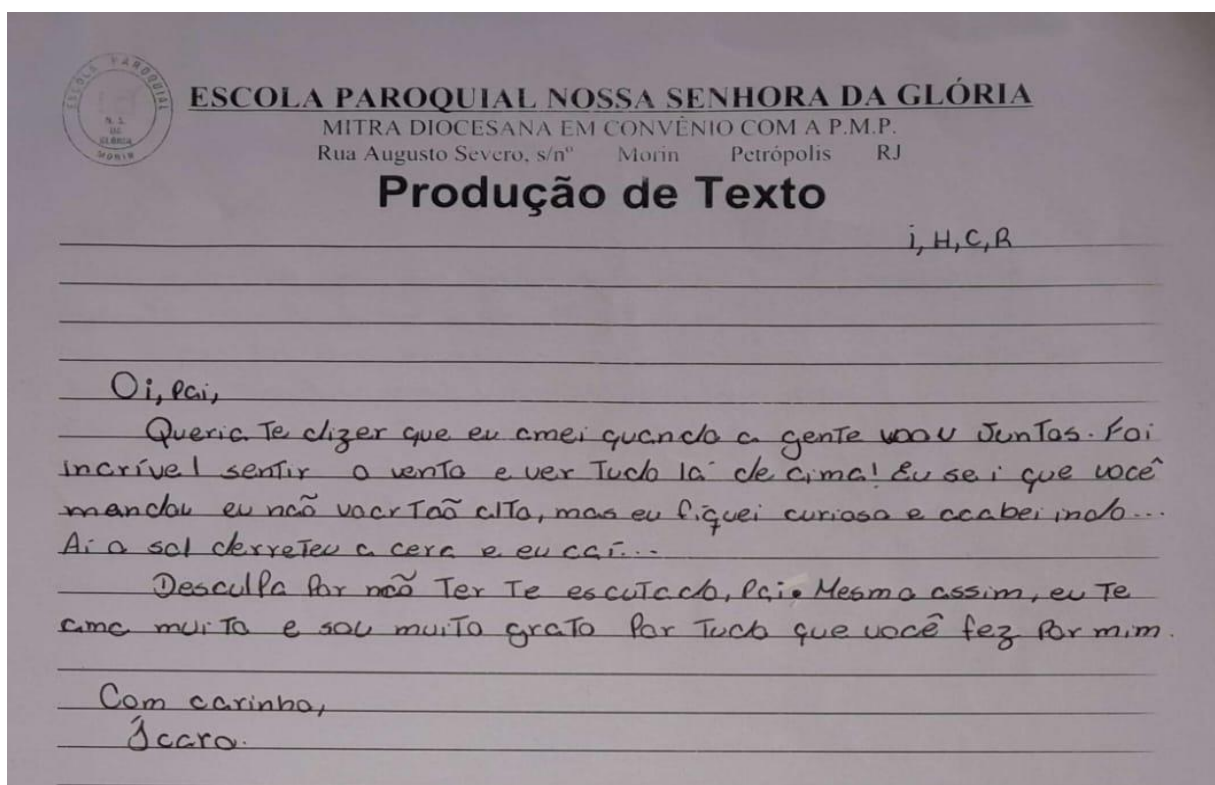 ESCOLA PAROQUIAL
N. S.
DA
GLÓRIA
MORIN
ESCOLA PAROQUIAL NOSSA SENHORA DA GLÓRIA
MITRA DIOCESANA EM CONVÊNIO COM A P.M.P.
Rua Augusto Severo, s/nº Morin Petrópolis RJ
Produção de Texto
i, H, C, R
Oi, Pai,
Queria Te dizer que eu amei quando a gente voou Juntos. Foi
incrível sentir o vento e ver Tudo lá de cima! Eu sei que você
mandou eu não voar Tão alTo, mas eu fiquei curioso e acabei indo...
Aí o sol derreTeu a cera e eu caí...
Desculpa Por não Ter Te escuTado, Pai. Mesmo assim, eu Te
amo muiTo e sou muiTo graTo Por Tudo que você fez Por mim.
Com carinho,
Ícaro.